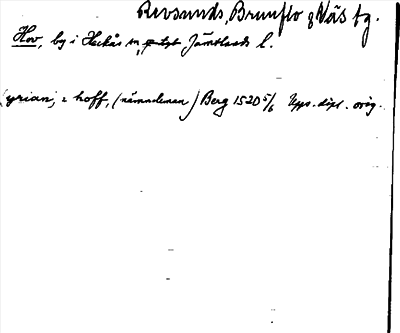 Revsunds, Brunflo o Näs tg.
Hov, by i Hackås sn, Jämtlands l.
(yrian) i hoff, (nämndeman) Berg 1520 5/6 Upps. dipl. orig.